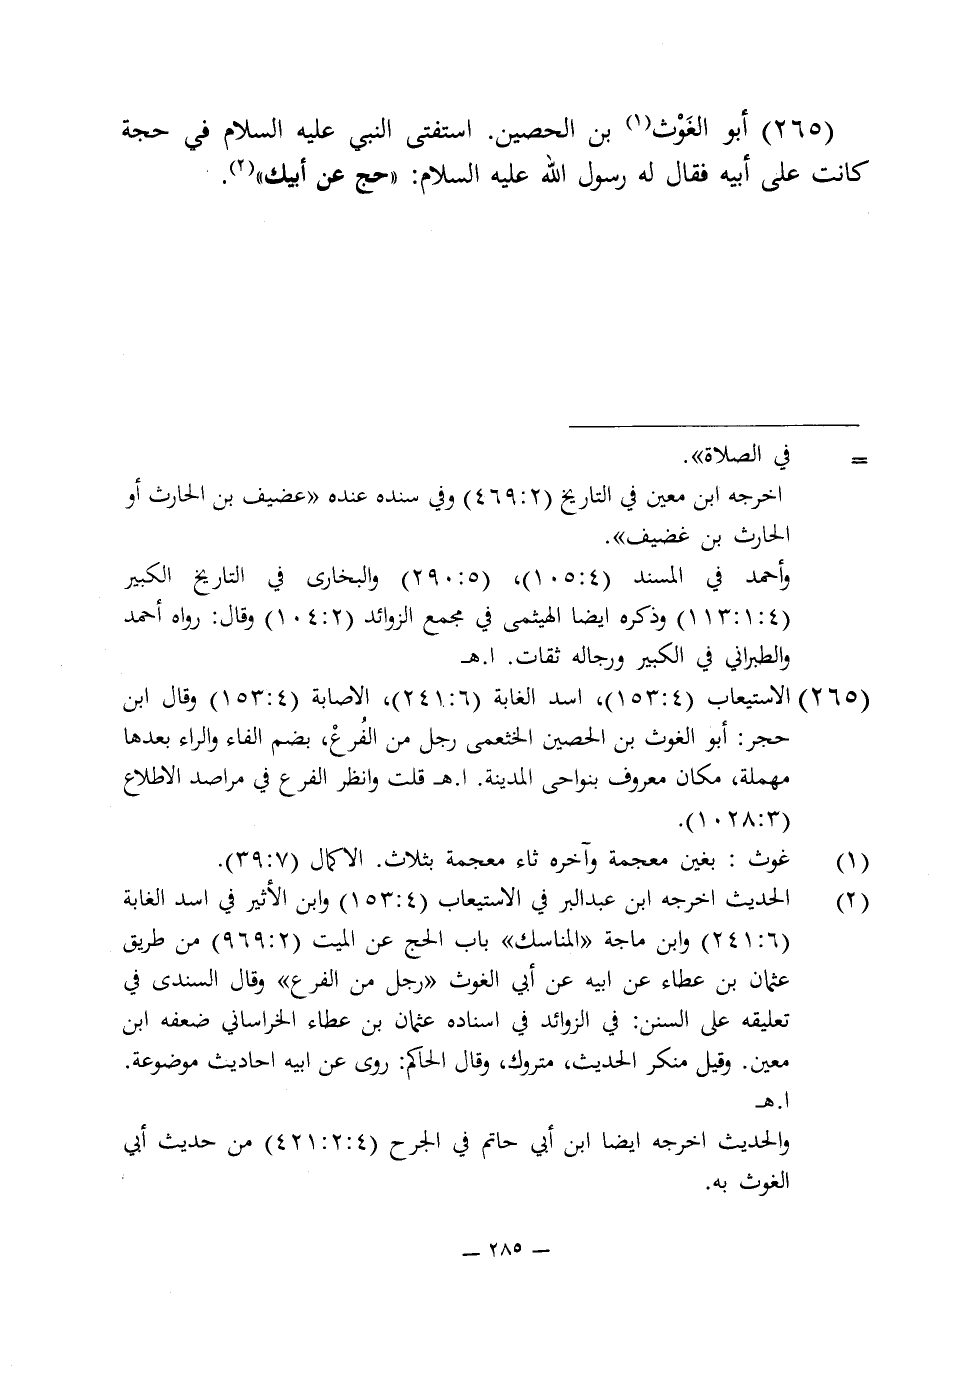 (٢٦٥) أبو الغَوْث(١) بن الحصين. استفتى النبي عليه السلام في حجة
كانت على أبيه فقال له رسول الله عليه السلام: «حج عن أبيك»(٢).
= في الصلاة».
اخرجه ابن معين في التاريخ (٤٦٩:٢) وفي سنده عنده «عضيف بن الحارث أو
الحارث بن غضيف».
وأحمد في المسند (١٠٥:٤)، (٢٩٠:٥) والبخارى في التاريخ الكبير
(١١٣:١:٤) وذكره ايضا الهيثمى في مجمع الزوائد (١٠٤:٢) وقال: رواه أحمد
والطبراني في الكبير ورجاله ثقات. ا.هـ
(٢٦٥) الاستيعاب (١٥٣:٤)، اسد الغابة (٢٤١:٦)، الاصابة (١٥٣:٤) وقال ابن
حجر: أبو الغوث بن الحصين الخثعمى رجل من الفُرعْ، بضم الفاء والراء بعدها
مهملة، مكان معروف بنواحى المدينة. ا.هـ قلت وانظر الفرع في مراصد الاطلاع
(١٠٢٨:٣).
(١) غوث : بغين معجمة وآخره ثاء معجمة بثلاث. الاكمال (٣٩:٧).
(٢) الحديث اخرجه ابن عبدالبر في الاستيعاب (١٥٣:٤) وابن الأثير في اسد الغابة
(٢٤١:٦) وابن ماجة «المناسك» باب الحج عن الميت (٩٦٩:٢) من طريق
عثمان بن عطاء عن ابيه عن أبي الغوث «رجل من الفرع» وقال السندى في
تعليقه على السنن: في الزوائد في اسناده عثمان بن عطاء الخراساني ضعفه ابن
معين. وقيل منكر الحديث، متروك، وقال الحاكم: روى عن ابيه احاديث موضوعة.
ا.هـ
والحديث اخرجه ايضا ابن أبي حاتم في الجرح (٤٢١:٢:٤) من حديث أبي
الغوث به.
— ٢٨٥ —